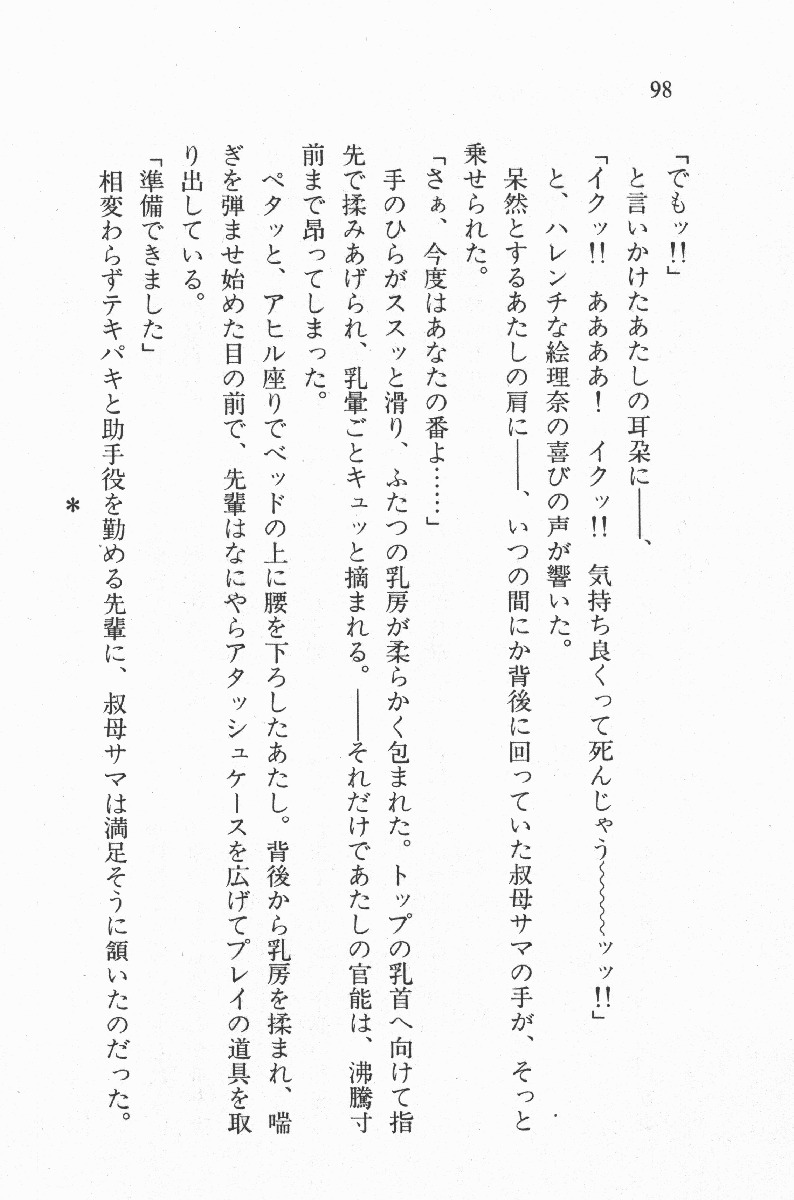 98
「でもッ!!」
と言いかけたあたしの耳朶に――、
「イクッ!!　ああああ！　イクッ!!　気持ち良くって死んじゃう～～～～ッッ!!」
と、ハレンチな絵理奈の喜びの声が響いた。
呆然とするあたしの肩に――、いつの間にか背後に回っていた叔母サマの手が、そっと
乗せられた。
「さぁ、今度はあなたの番よ……」
手のひらがススッと滑り、ふたつの乳房が柔らかく包まれた。トップの乳首へ向けて指
先で揉みあげられ、乳暈ごとキュッと摘まれる。――それだけであたしの官能は、沸騰寸
前まで昂ってしまった。
ペタッと、アヒル座りでベッドの上に腰を下ろしたあたし。背後から乳房を揉まれ、喘
ぎを弾ませ始めた目の前で、先輩はなにやらアタッシュケースを広げてプレイの道具を取
り出している。
「準備できました」
相変わらずテキパキと助手役を勤める先輩に、叔母サマは満足そうに頷いたのだった。
＊